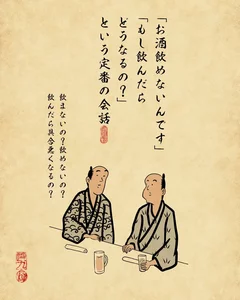 「お酒飲めないんです」
「もし飲んだら
どうなるの？」
という定番の会話
飲まないの？飲めないの？
飲んだら具合悪くなるの？